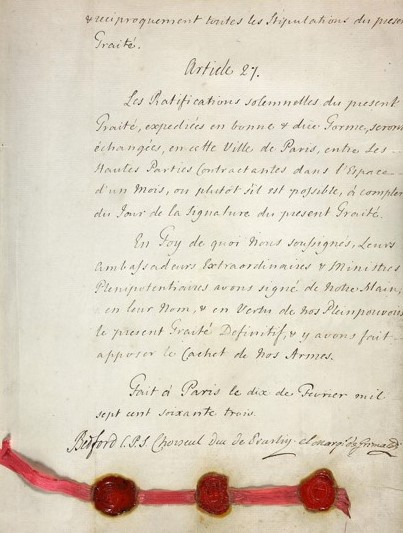 & reciproquement toutes les Stipulations du présent
Traité.
Article 27.
Les Ratifications solemnelles du présent
Traité, expediées en bonne & due Forme, seront
échangées, en cette Ville de Paris, entre Les
Hautes Parties Contractantes dans l'Espace
d'un Mois, ou plutôt s'il est possible, à compter
du Jour de la Signature du present Traité.
En Foy de quoi Nous soussignés, Leurs
Ambassadeurs Extraordinaires & Ministres
Plenipotentiaires avons signé de Notre Main,
en leur Nom, & en Vertu de nos Pleinpouvoirs
le present Traité Definitif, & y avons fait
apposer le Cachet de Nos Armes.
Fait à Paris le dix de Fevrier mil
sept cent soixante trois.
Bedford C.P.S. Choiseul Duc de Praslin el Marqs. de Grimaldi